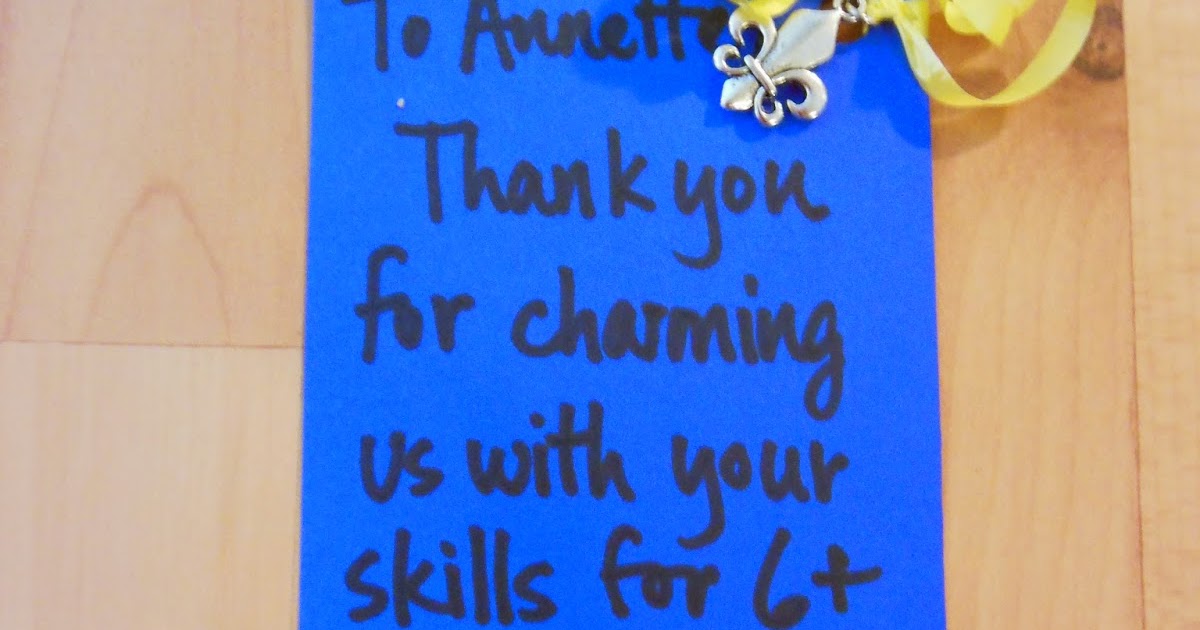 To Annette
Thank you
for charming
us with your
skills for 6+